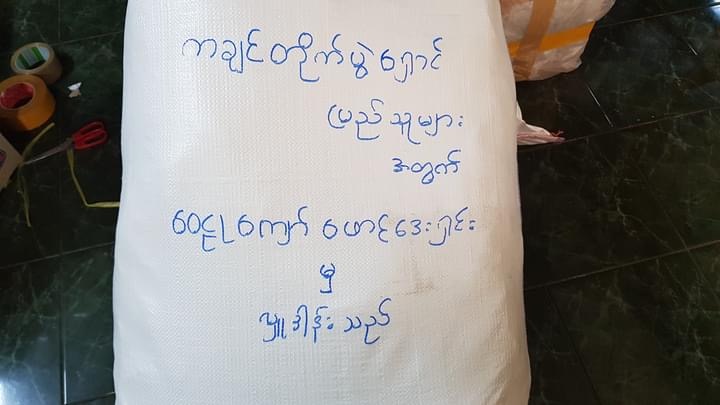 ကချင်တိုက်ပွဲရှောင်
ပြည်သူများ
အတွက်
ဝေဠုကျော် ဖောင်ဒေးရှင်း
မှ
လှူဒါန်းသည်